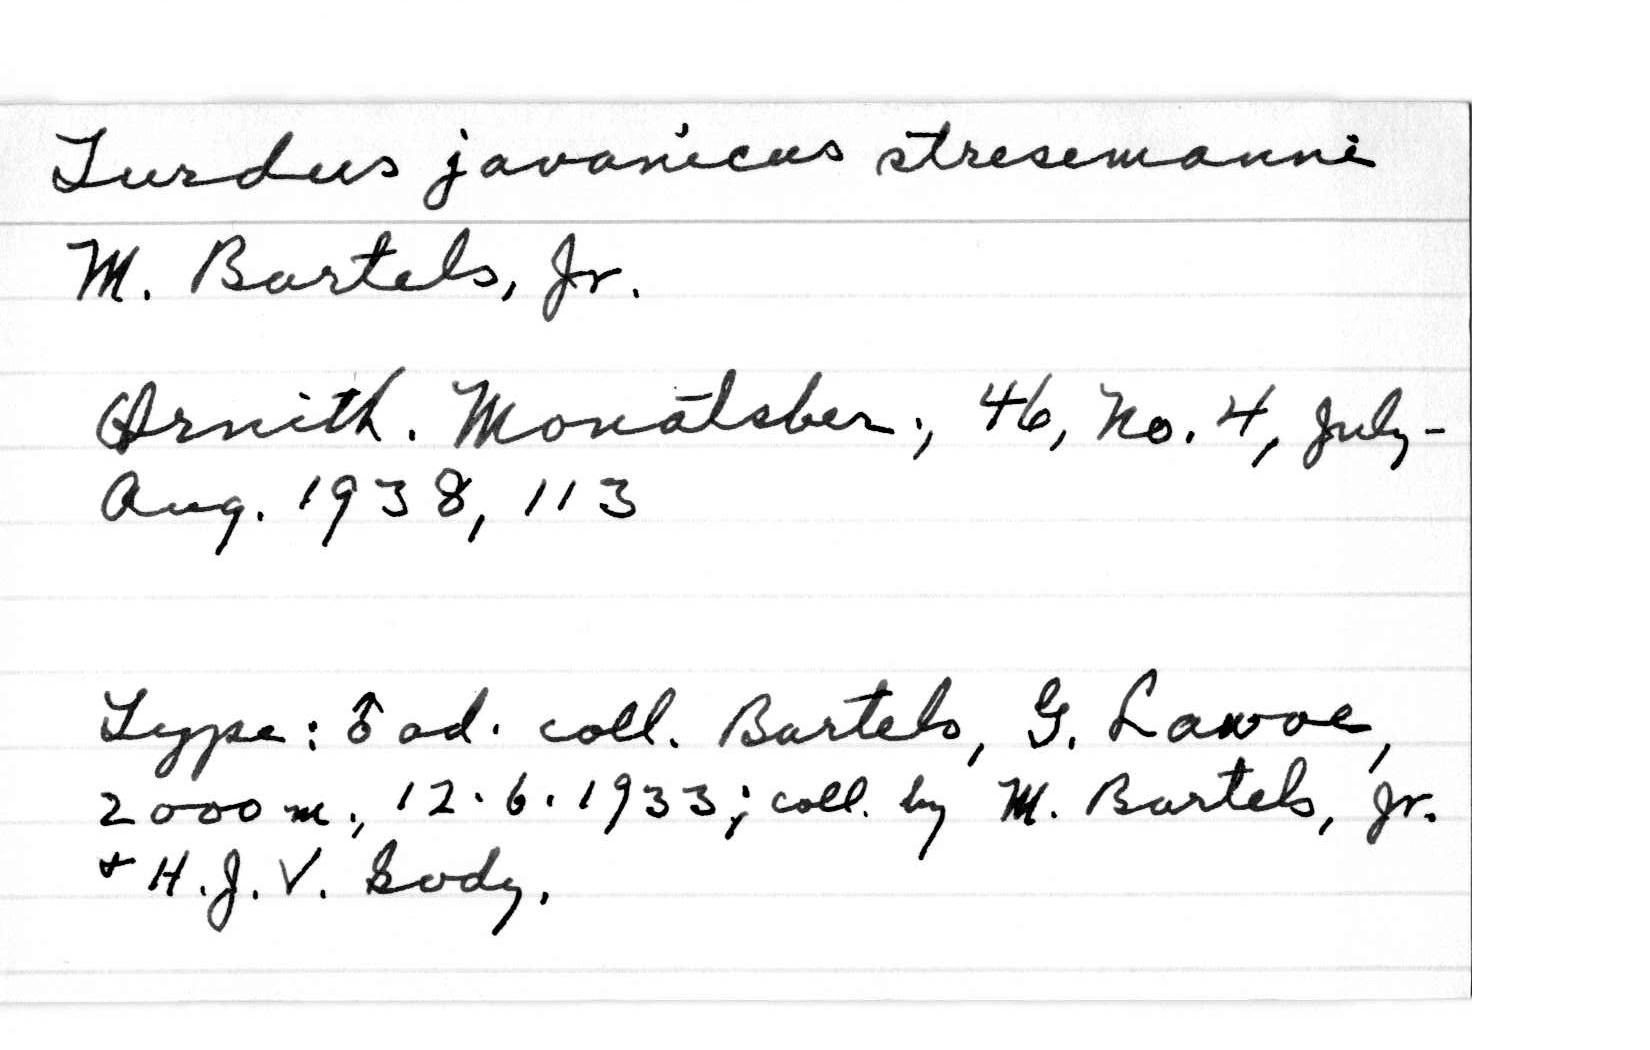 Turdus javanicus stresemanni
M. Bartels, Jr.
Ornith. Monatsber., 46, No. 4, July-
Aug. 1938, 113
Type: ♂ ad. coll. Bartels, G. Lawoe,
2000 m., 12.6.1933; coll. by M. Bartels, Jr.
+ H.J.V. Sody.